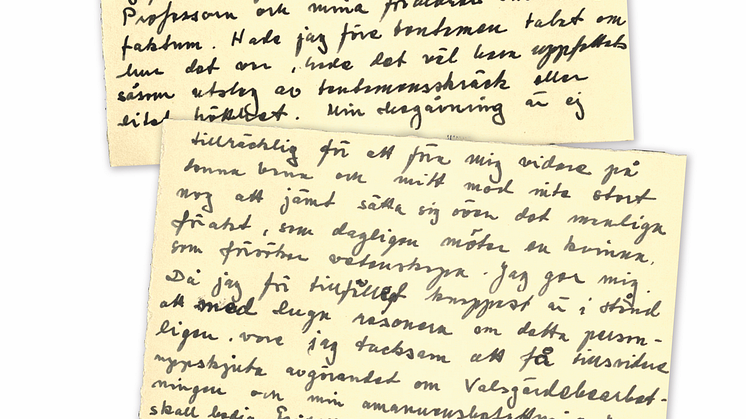 Professorn och mina föräldrar
faktum. Hade jag före tentamen talat om
hur det var, hade det väl bara uppfattats
såsom utslag av tentamensskräck eller
eller lätthet. Min begåvning är ej
tillräcklig för att föra mig vidare på
denna bana och mitt mod inte stort
nog att jämt sätta sig över det manliga
förakt, som dagligen möter en kvinna,
som försöker vetenskapa. Jag ger mig.
Då jag för tillfället knappast är i stånd
att med lugn resonera om detta person-
ligen, vore jag tacksam att få tillsvidare
uppskjuta avgörandet om Valsgärdebearbet-
ningen och min amanuensbefattning
skall bedja